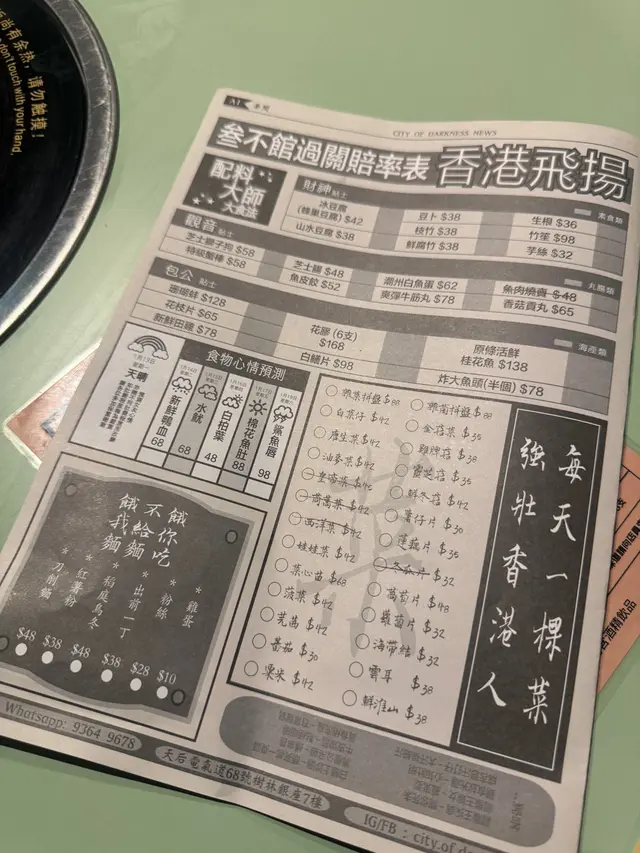 尚有余热，请勿触摸！
don't touch with your hand.
A1
CITY OF DARKNESS NEWS
叁不館過關賠率表 香港飛揚
配料大師
財神 貼士
素食類
冰豆腐
(蜂巢豆腐) $42
豆卜 $38
生根 $36
枝竹 $38
竹笙 $98
山水豆腐 $38
鮮腐竹 $38
芋絲 $32
觀音 貼士
丸腸類
芝士獅子狗 $58
芝士腸 $48
潮州白魚蛋 $62
魚肉燒賣 $48
特級蟹棒 $58
魚皮餃 $52
爽彈牛筋丸 $78
香菇貢丸 $65
包公 貼士
海產類
珊瑚蚌 $128
花枝片 $65
花膠 (6支)
$168
原條活鮮
桂花魚 $138
新鮮田雞 $78
白鱔片 $98
炸大魚頭(半個) $78
食物心情預測
天晴
新鮮鴨血
68
水魷
68
白柏葉
48
棉花魚肚
88
鯊魚唇
98
雜菜拼盤 $88
白菜仔 $42
唐生菜 $42
油麥菜 $42
皇帝菜 $42
茼蒿菜 $42
西洋菜 $42
娃娃菜 $42
菜心苗 $68
菠菜 $42
芫茜 $42
番茄 $30
粟米 $42
雜菇拼盤 $88
金菇菜 $35
雞脾菇 $38
靈芝菇 $38
鮮冬菇 $42
薯仔片 $30
蓮藕片 $35
冬瓜片 $32
萵筍片 $48
蘿蔔片 $32
海帶結 $32
雲耳 $38
鮮淮山 $38
每天一棵菜
強壯香港人
餓你吃
不給麵
餓我麵
雞蛋
$10
粉絲
$28
出前一丁
$38
稻庭烏冬
$48
紅薯粉
$38
刀削麵
$48
Whatsapp: 9364 9678
天后電氣道68號樹林銀座7樓
IG/FB : city.of.d
含酒精飲品